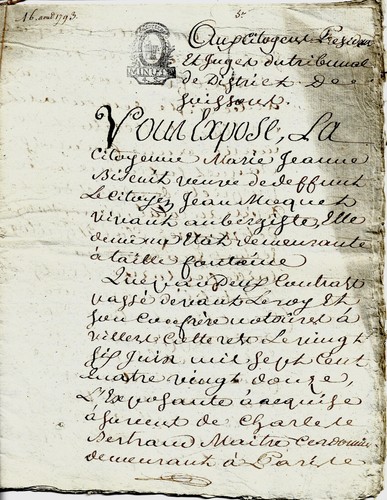 16. avril 1793.
Aux Citoyens Président
Et Juges du tribunal
de District De
Soissons.
Vous Expose, La
Citoyenne Marie Jeanne
veuve de deffunt
Le Citoyen Jean Mocquet
vivant aubergiste, Elle
Etat demeurante
à taille fontaine
Que par Contrat
passé devant Leroy Et
son Confrère notaires à
villers Cotterets Le vingt
Six Juin mil Sept Cent
quatre vingt douze,
L'Exposante à acquise
de Charles
Bertrand Maitre Cordonnier
demeurant à Paris